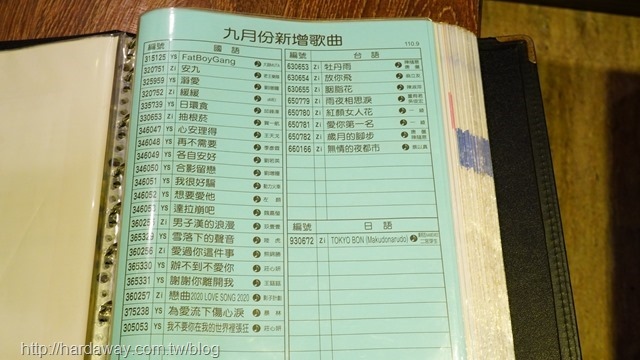 九月份新增歌曲
110.9
編號 國語
315125 YS FatBoyGang
320751 Zi 安九
325959 YS 溺愛
320752 Zi 緩緩
335739 YS 日環食
330653 Zi 抽根菸
346047 YS 心安理得
346048 YS 再不需要
346049 YS 各自安好
346050 YS 合影留戀
346051 YS 我很好騙
346052 YS 想要愛他
YS 達拉崩吧
Zi 男子漢的浪漫
365329 YS 雪落下的聲音
Zi 愛過你這件事
365330 YS 辦不到不愛你
365331 YS 謝謝你離開我
360257 Zi 戀曲2020 LOVE SONG 2020
375238 YS 為愛流下傷心淚
305053 YS 我不要你在我的世界裡張狂
編號 台語
630653 Zi 牡丹雨
630654 Zi 放你飛
630655 Zi 胭脂花
650779 Zi 雨夜相思淚
650780 Zi 紅顏女人花
650781 Zi 愛你第一名
650782 Zi 歲月的腳步
660166 Zi 無情的夜都市
編號 日語
930672 Zi TOKYO BON (Makudonarudo)
http://hardaway.com.tw/blog